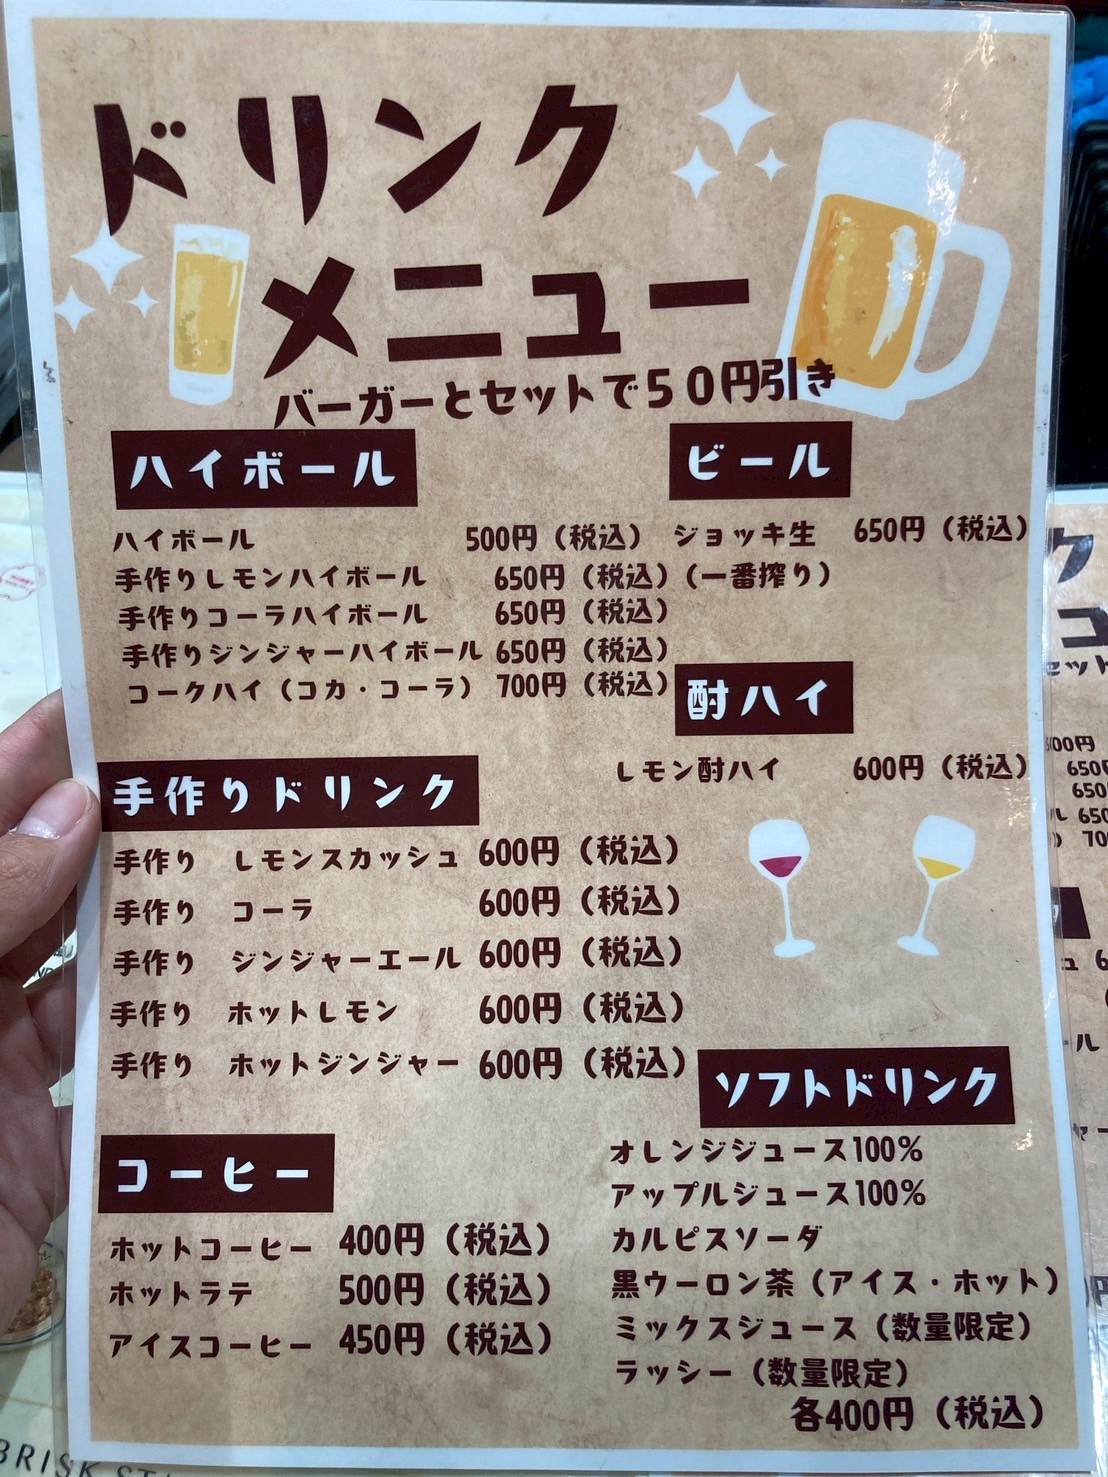 ドリンク
メニュー
バーガーとセットで５０円引き
ハイボール
ハイボール 500円（税込）
手作りレモンハイボール 650円（税込）
手作りコーラハイボール 650円（税込）
手作りジンジャーハイボール 650円（税込）
コークハイ（コカ・コーラ） 700円（税込）
ビール
ジョッキ生 650円（税込）
（一番搾り）
酎ハイ
レモン酎ハイ 600円（税込）
手作りドリンク
手作り レモンスカッシュ 600円（税込）
手作り コーラ 600円（税込）
手作り ジンジャーエール 600円（税込）
手作り ホットレモン 600円（税込）
手作り ホットジンジャー 600円（税込）
コーヒー
ホットコーヒー 400円（税込）
ホットラテ 500円（税込）
アイスコーヒー 450円（税込）
ソフトドリンク
オレンジジュース100％
アップルジュース100％
カルピスソーダ
黒ウーロン茶（アイス・ホット）
ミックスジュース（数量限定）
ラッシー（数量限定）
各400円（税込）
BRISK